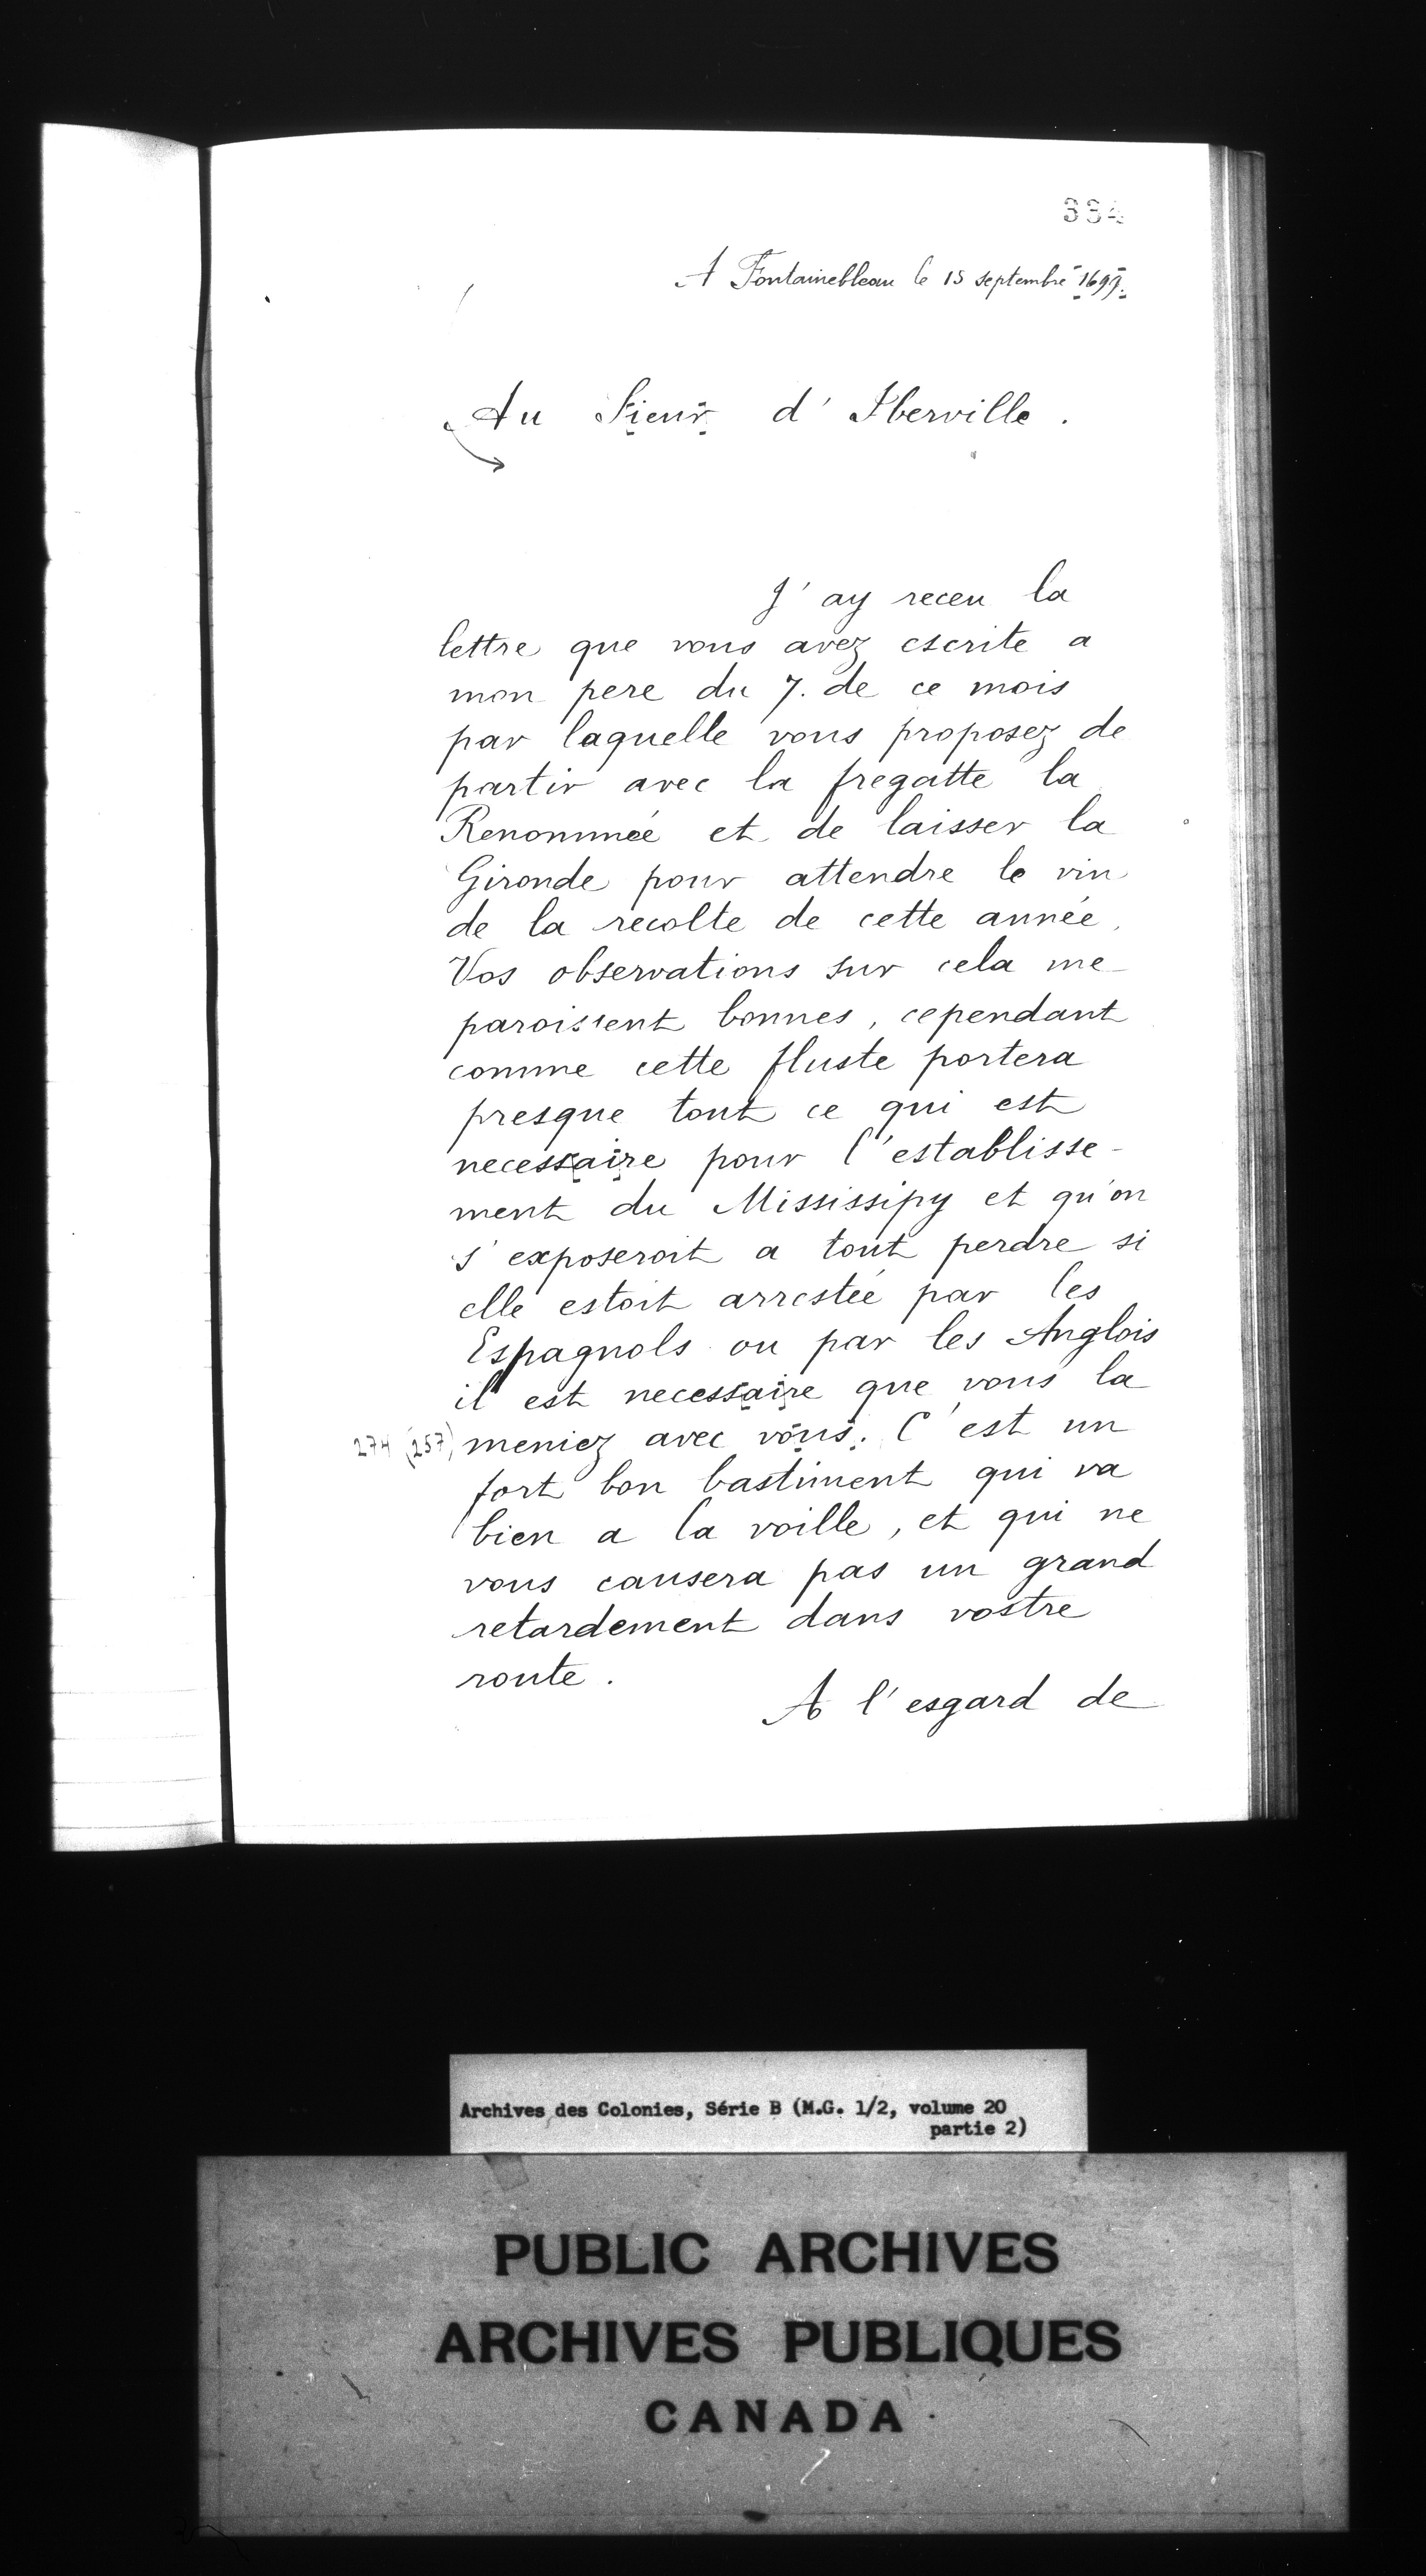 334
A Fontainebleau le 15 septembre 1699.
Au Sieur d'Iberville.
J'ay receu la
lettre que vous avez escrite a
mon pere du 7. de ce mois
par laquelle vous proposez de
partir avec la fregatte la
Renommée et de laisser la
Gironde pour attendre le vin
de la recolte de cette année,
Vos observations sur cela me
paroissent bonnes, cependant
comme cette fluste portera
presque tout ce qui est
necessaire pour l'establisse-
ment du Mississipy et qu'on
s'exposeroit a tout perdre si
elle estoit arrestée par les
Espagnols ou par les Anglois
il est necessaire que vous la
274 (257) meniez avec vous. C'est un
fort bon bastiment qui va
bien a la voille, et qui ne
vous causera pas un grand
retardement dans vostre
route.
A l'esgard de
Archives des Colonies, Série B (M.G. 1/2, volume 20
partie 2)
PUBLIC ARCHIVES
ARCHIVES PUBLIQUES
CANADA